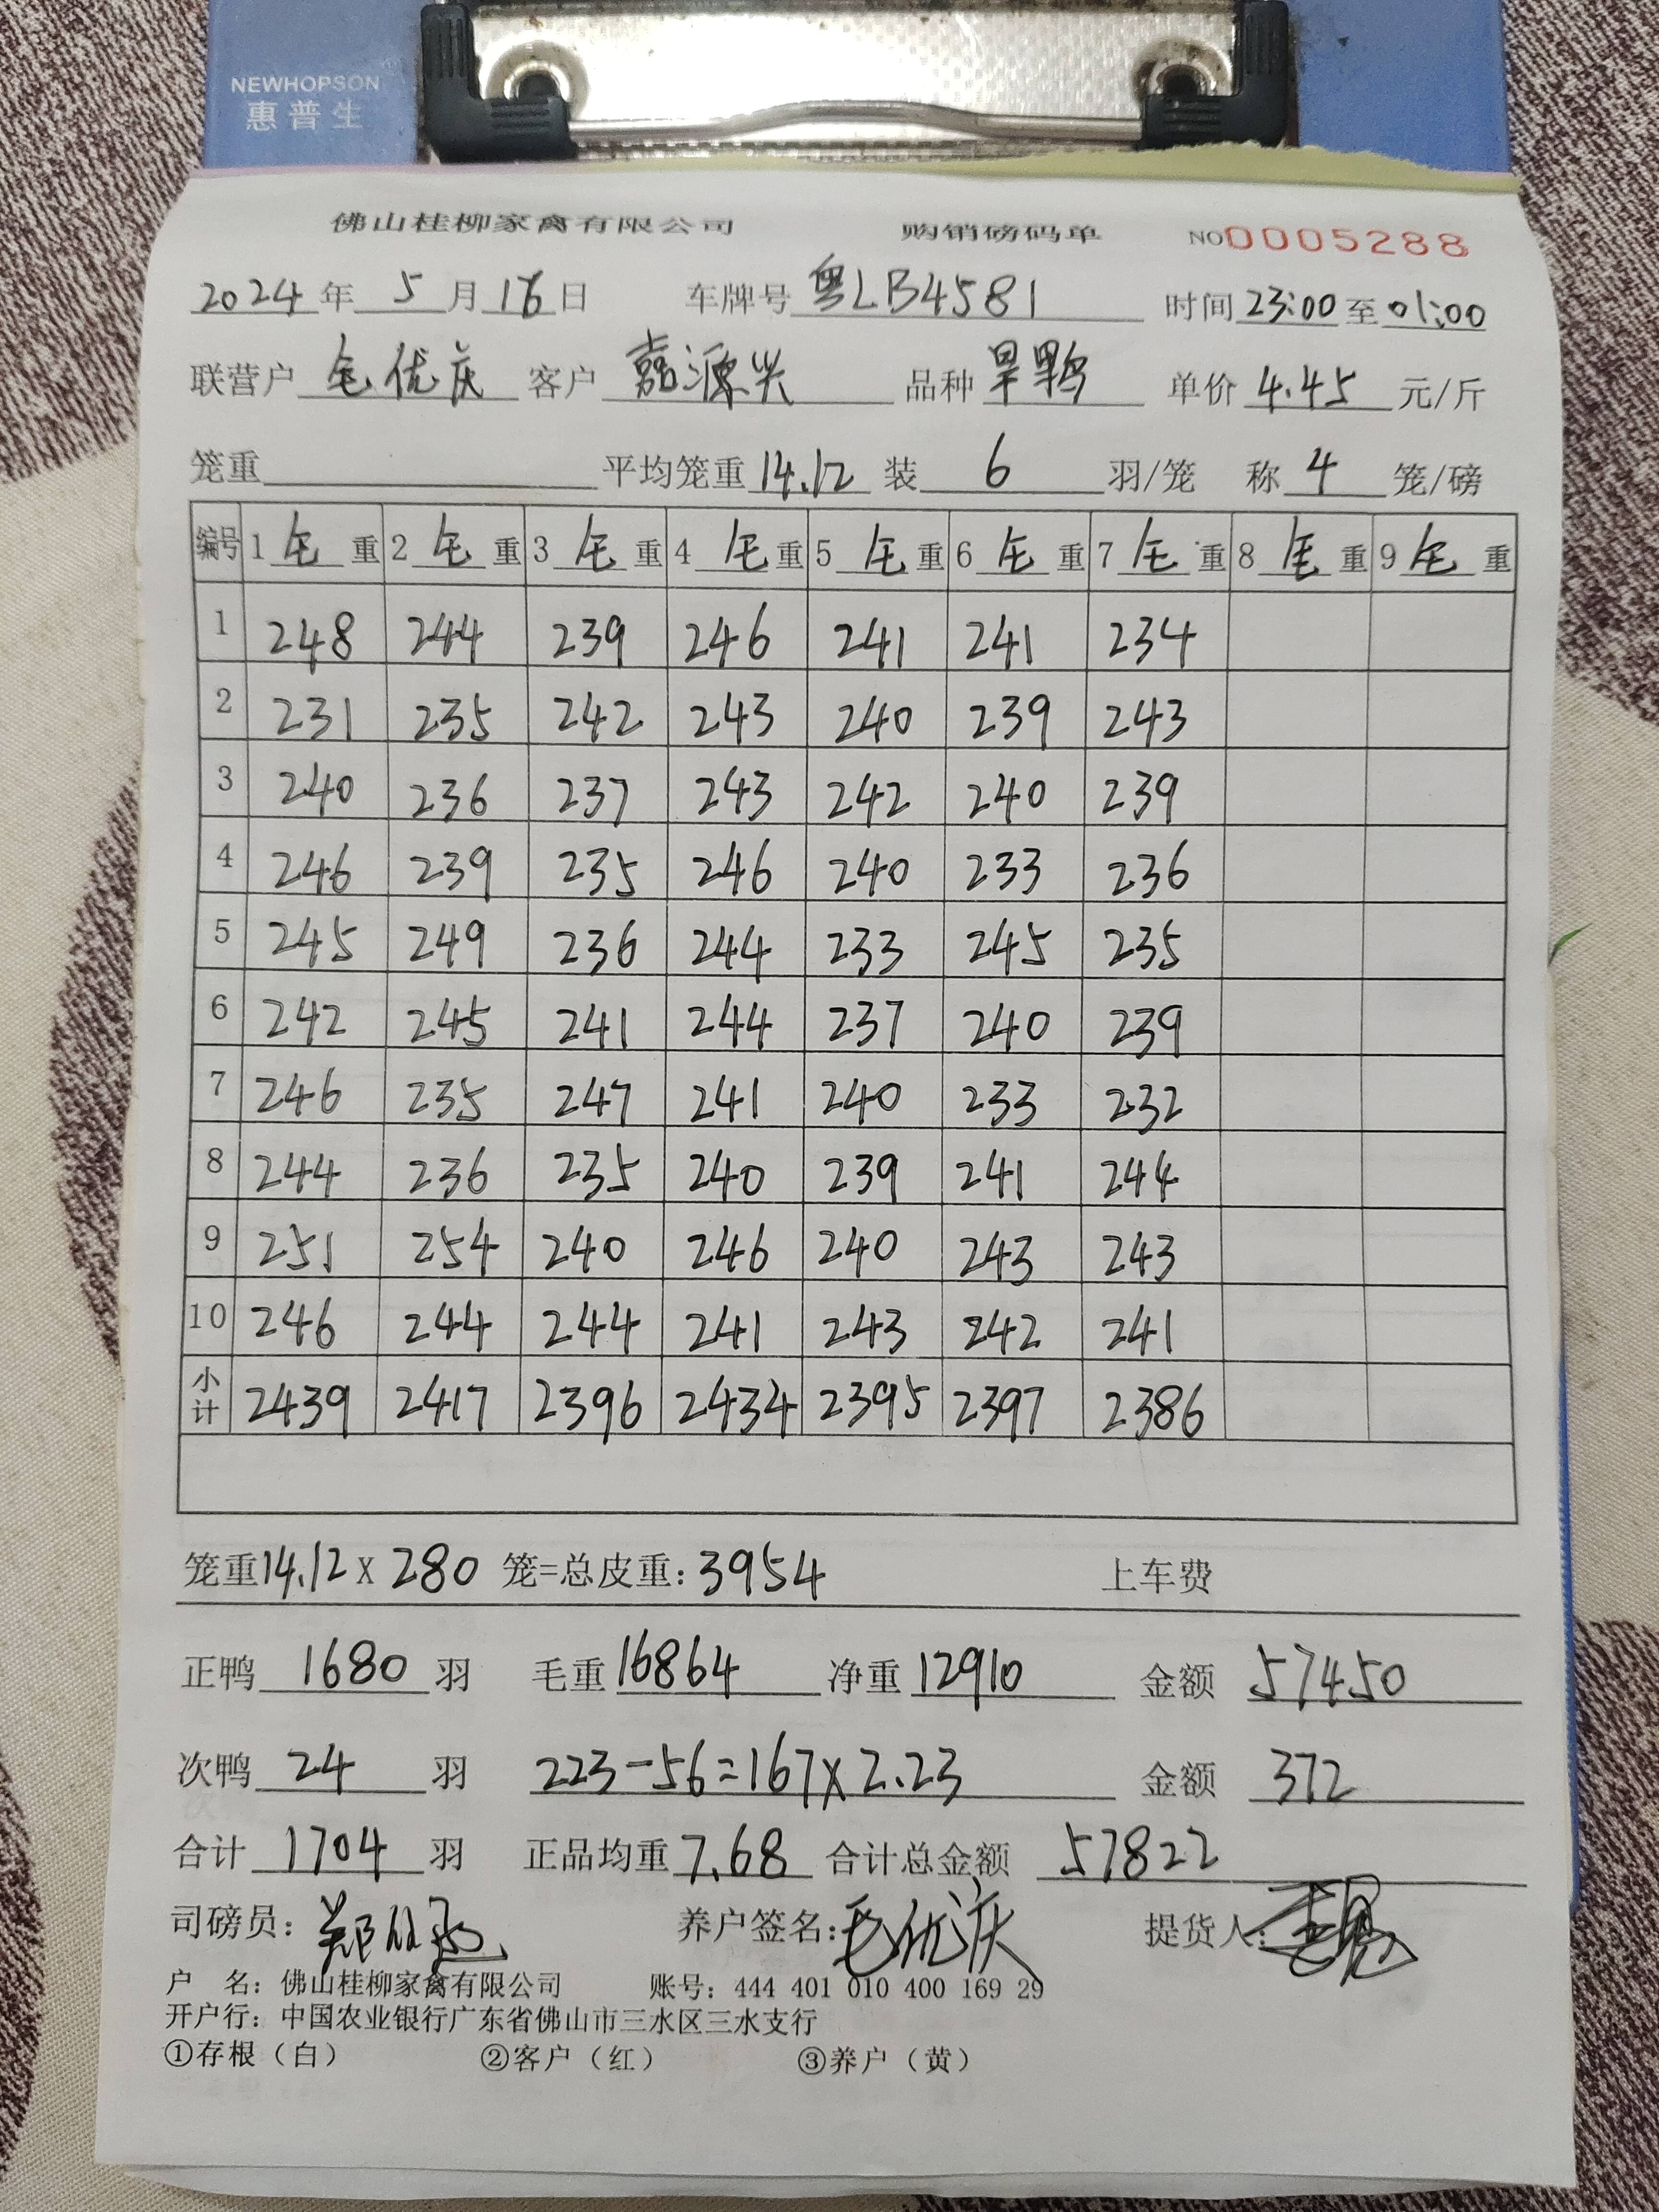 NEWHOPSON
惠普生
佛山桂柳家禽有限公司 购销磅码单 NO0005288
2024年5月16日 车牌号粤LB4581 时间23:00至01:00
联营户毛优庆 客户嘉源兴 品种旱鸭 单价4.45元/斤
笼重 平均笼重14.12装6羽/笼 称4笼/磅
编号 1毛重 2毛重 3毛重 4毛重 5毛重 6毛重 7毛重 8毛重 9毛重
1 248 244 239 246 241 241 234
2 231 235 242 243 240 239 243
3 240 236 237 243 242 240 239
4 246 239 235 246 240 233 236
5 245 249 236 244 233 245 235
6 242 245 241 244 237 240 239
7 246 235 247 241 240 233 232
8 244 236 235 240 239 241 244
9 251 254 240 246 240 243 243
10 246 244 244 241 243 242 241
小计 2439 2417 2396 2434 2395 2397 2386
笼重14.12x280笼=总皮重:3954 上车费
正鸭1680羽 毛重16864 净重12910 金额57450
次鸭24羽 223-56=167x2.23 金额372
合计1704羽 正品均重7.68 合计总金额57822
司磅员: 养户签名:毛优庆 提货人:
户 名:佛山桂柳家禽有限公司 账号:444 401 010 400 169 29
开户行:中国农业银行广东省佛山市三水区三水支行
①存根(白) ②客户(红) ③养户(黄)